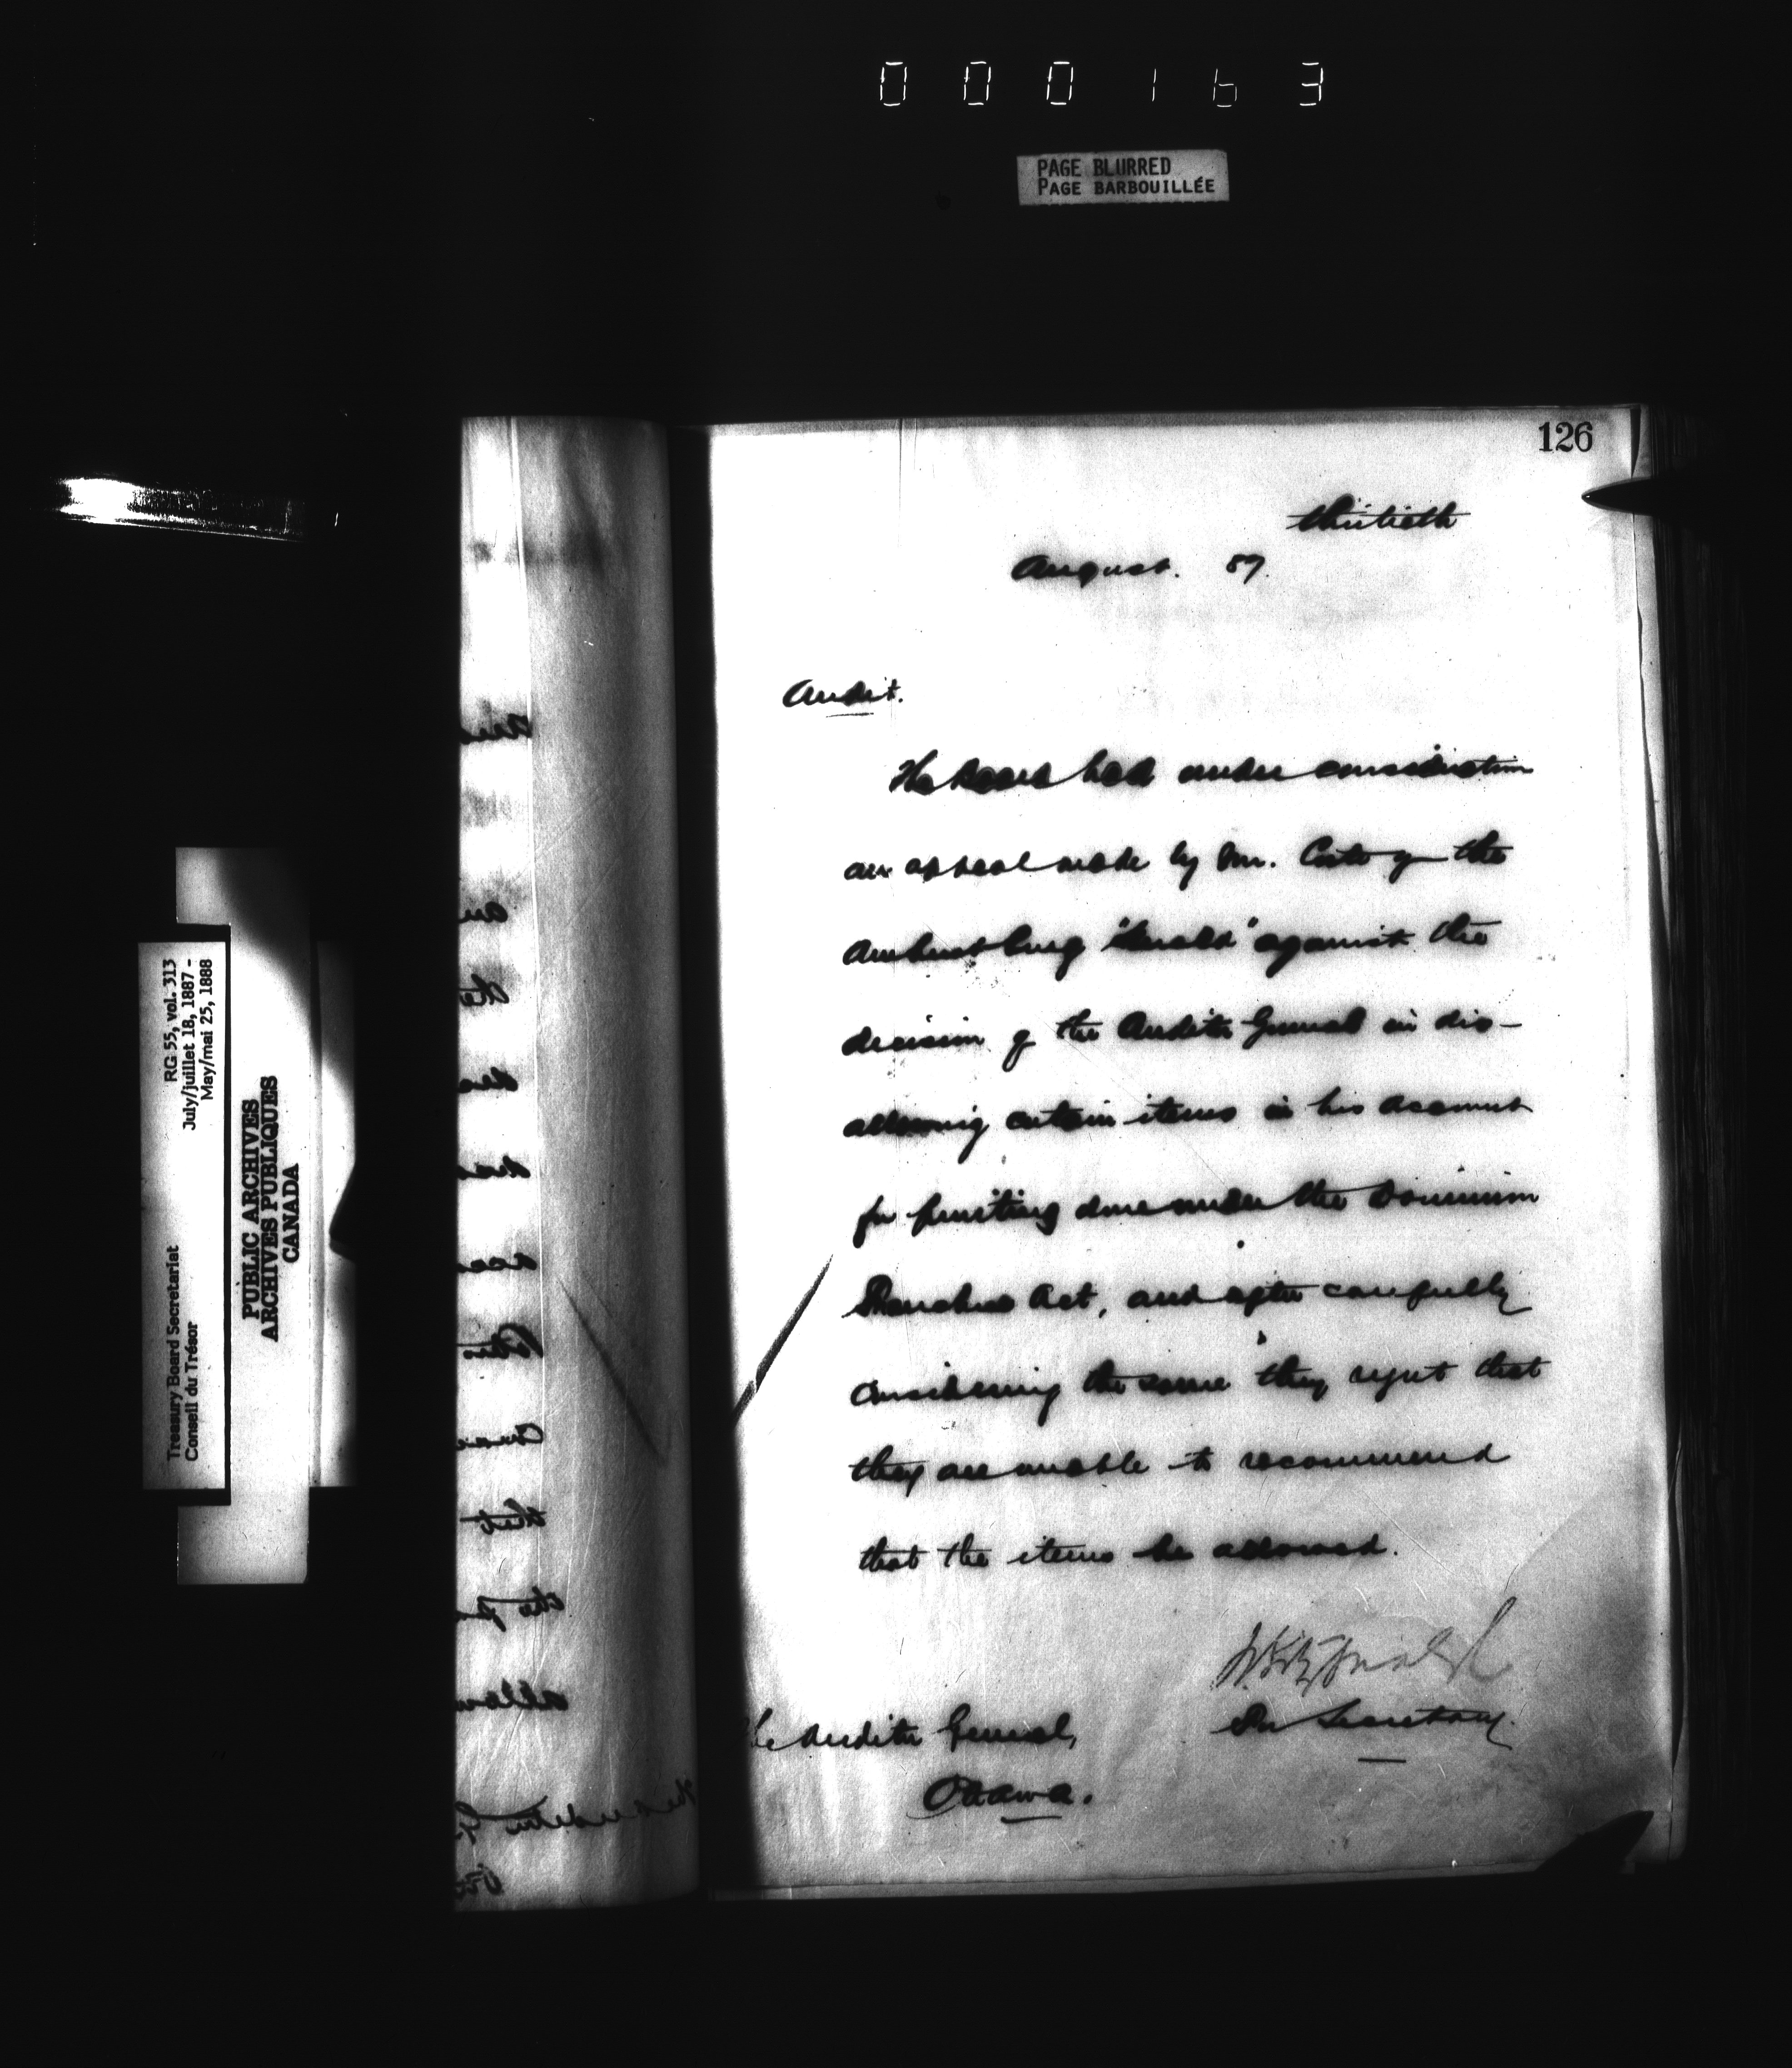 000163
PAGE BLURRED
PAGE BARBOUILLÉE
RG 55, vol. 313
July/juillet 18, 1887 -
May/mai 25, 1888
Treasury Board Secretariat
Conseil du Trésor
PUBLIC ARCHIVES
ARCHIVES PUBLIQUES
CANADA
126
thirtieth
August. 87.
Audit.
The Board had under consideration
an appeal made by Mr. of the
Amherstburg "Herald" against the
decision of the Auditor General in dis-
allowing certain items in his account
for printing done under the Dominion
Franchise Act, and after carefully
considering the same they regret that
they are unable to recommend
that the items be allowed.
Secretary.
The Auditor General,
Ottawa.